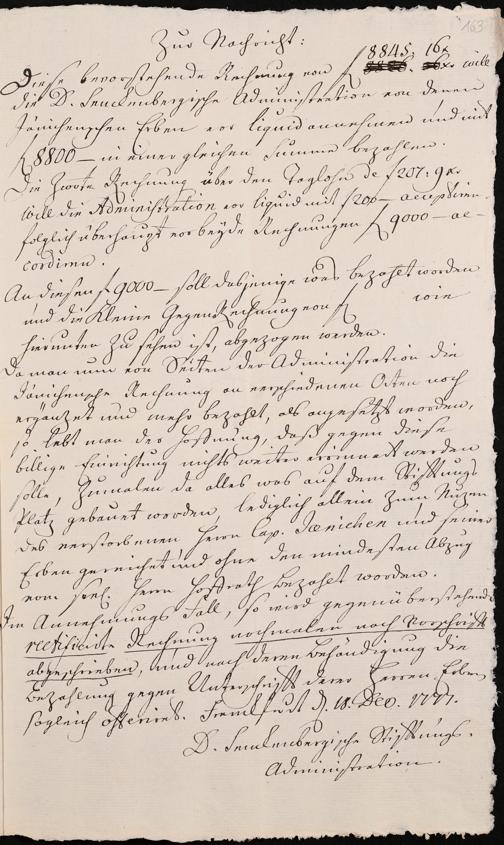 163
Zur Nachricht:
Diese bevorstehende Rechnung von f 8845. 16x will
die D. Senckenbergische Administration von denen
Jänichenschen Erben vor liquid annehmen und mit
f 8800 — in einer gleichen Summe bezahlen.
Die Zwote Rechnung über den Taglohn de f 207: 9 xr
will die Administration vor liquid mit f 200 — acceptiren
folglich überhaupt vor beyde Rechnungen f 9000 — ac-
cordiren.
An diesen f 9000 — soll dasjenige was bezahlt worden
und die kleine GegenRechnung von f wie
hierunten zu sehen ist, abgezogen werden.
Da man nun von Seiten der Administration die
Jänichensche Rechnung an verschiedenen Orten noch
ergänzet und mehr bezahlt, als angesetzt worden,
so lebt man der Hoffnung, daß gegen diese
billige Einrichtung nichts weiter werden
solle, zumalen da alles was auf dem Stifftungs
Platz gebauet worden, lediglich allein zum Nuzen
des verstorbenen Herrn Cap. Jaenichen und seiner
Erben gereichet und ohne den mindesten Abzug
vom seel. Herrn Hoffrath bezahlt worden.
Im Annehmungs Fall, so wird gegenüberstehende
rectificirte Rechnung nochmalen nach Vorschrifft
abgeschrieben, und nach deren Behändigung die
Bezahlung gegen Unterschrifft derer Herren Erben
sogleich offeriret. Frankfurt d. 18. Dec. 1777.
D. Senckenbergische Stifftungs.
Administration.